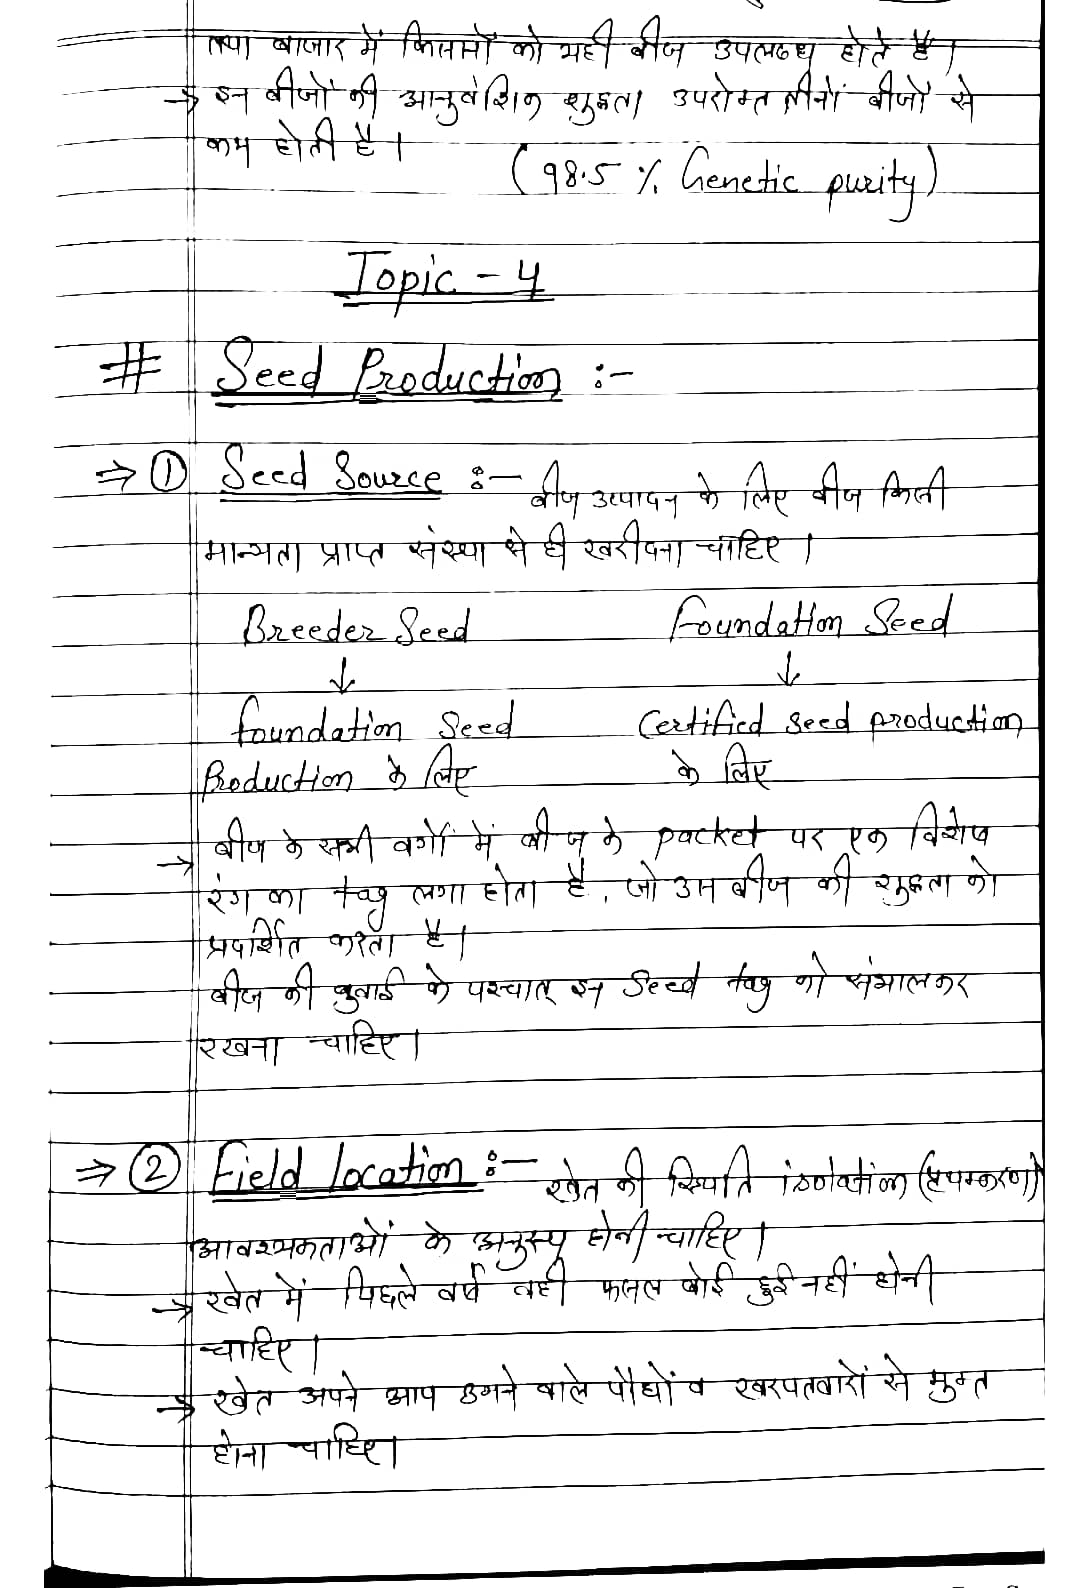 तथा बाजार में किसानों को यही बीज उपलब्ध होते हैं।
→ इन बीजों की आनुवंशिक शुद्धता उपरोक्त तीनों बीजों से
कम होती है।
(98.5 % Genetic purity)
Topic - 4
# Seed Production :-
⇒ ① Seed Source :- बीज उत्पादन के लिए बीज किसी
मान्यता प्राप्त संस्था से ही खरीदना चाहिए।
Breeder Seed Foundation Seed
↓ ↓
foundation Seed Certified seed production
Production के लिए के लिए
→ बीज के सभी वर्गों में बीज के packet पर एक विशेष
रंग का tag लगा होता है, जो उस बीज की शुद्धता को
प्रदर्शित करता है।
बीज की बुवाई के पश्चात् इन Seed tag को संभालकर
रखना चाहिए।
⇒ ② Field location :- खेत की स्थिति isolation (पृथक्करण)
आवश्यकताओं के अनुरूप होनी चाहिए।
→ खेत में पिछले वर्ष वही फसल बोई हुई नहीं होनी
चाहिए।
→ खेत अपने आप उगने वाले पौधों व खरपतवारों से मुक्त
होना चाहिए।